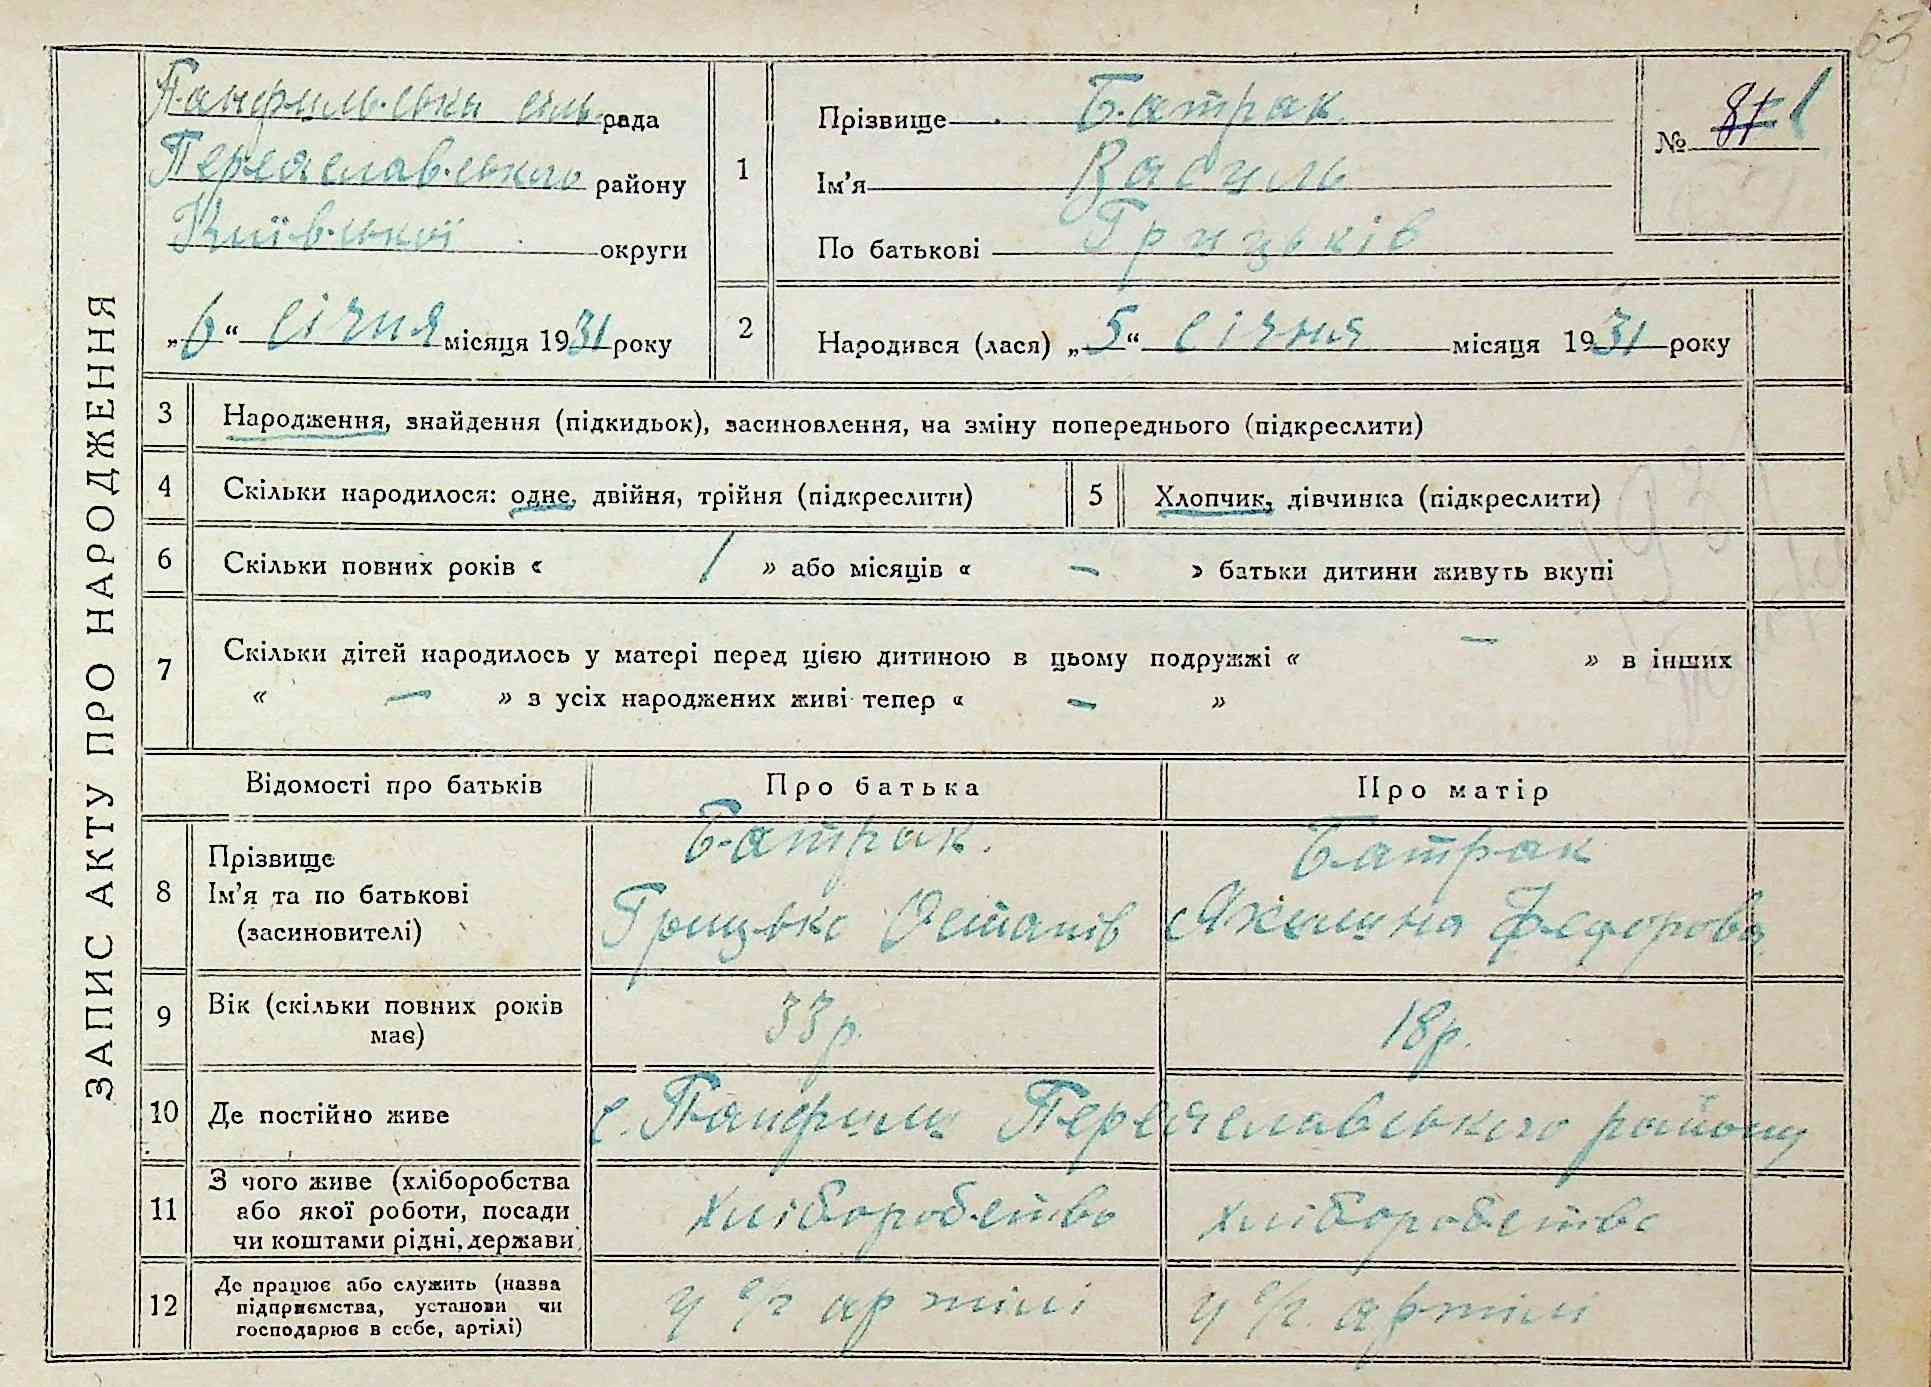 63
ЗАПИС АКТУ ПРО НАРОДЖЕННЯ
Панфильська сіль рада
Переяславського району
Київської округи
„6“ січня місяця 1931 року
1
Прізвище Батрак
Ім'я Василь
По батькові Грицьків
№ 1
2
Народився (лася) „5“ січня місяця 1931 року
3 Народження, знайдення (підкидьок), засиновлення, на зміну попереднього (підкреслити)
4 Скільки народилося: одне, двійня, трійня (підкреслити)
5 Хлопчик, дівчинка (підкреслити)
6 Скільки повних років « 1 » або місяців « – » батьки дитини живуть вкупі
7 Скільки дітей народилось у матері перед цією дитиною в цьому подружжі « – » в інших
« – » з усіх народжених живі тепер « – »
Відомості про батьків Про батька Про матір
8 Прізвище Батрак Батрак
Ім'я та по батькові Грицько Остапів Якилина Федорова
(засиновителі)
9 Вік (скільки повних років має) 33 р. 18 р.
10 Де постійно живе с. Панфили Переяславського району
11 З чого живе (хліборобства
або якої роботи, посади хліборобство хліборобство
чи коштами рідні, держави
12 Де працює або служить (назва
підприємства, установи чи у с/г артілі у с/г. артілі
господарює в себе, артілі)